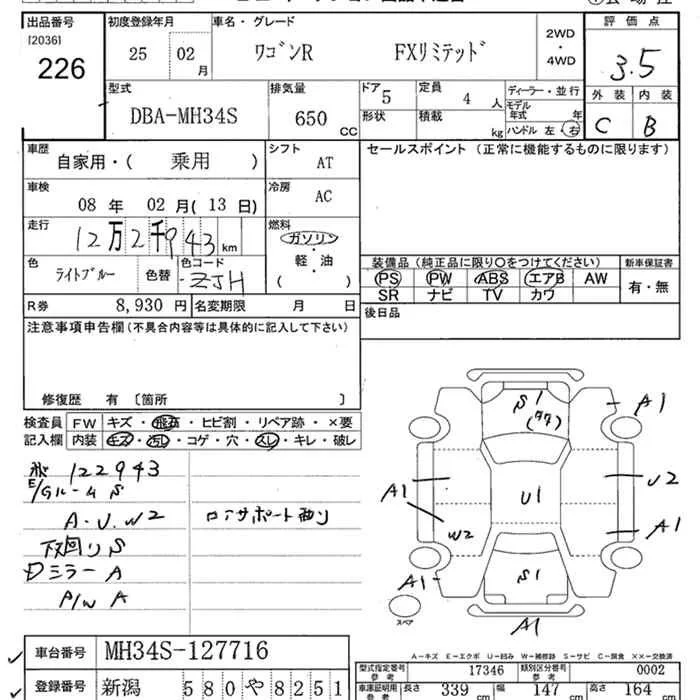 出品番号
[2036]
226
初度登録年月
25 02 月
車名・グレード
ワゴンR FXリミテッド
2WD
・
4WD
評価点
3.5
外装 内装
C B
型式
DBA-MH34S
排気量
650 CC
ドア 5
形状
定員 4 人
積載 kg
ディーラー・並行
モデル年式 年
ハンドル 左・右
車歴
自家用・( 乗用 )
シフト
AT
セールスポイント (正常に機能するものに限ります)
車検
08 年 02 月( 13 日)
冷房
AC
走行
12万2千943 km
燃料
ガソリン
軽・油
( )
色
ライトブルー
色替
色コード
ZJH
装備品 (純正品に限り○をつけてください)
PS PW ABS エアB AW
SR ナビ TV カワ
新車保証書
有・無
R券 8,930 円
名変期限 月 日
後日品
注意事項申告欄 (不具合内容等は具体的に記入して下さい)
修復歴 有 〔箇所 〕
検査員記入欄
FW キズ・飛石・ヒビ割・リペア跡・×要
内装 キズ・汚レ・コゲ・穴・スレ・キレ・破レ
122943
S
A・U・W2
下回りS
Dミラー A
P/W A
コアサポート
S1
A1
U2
A1
U1
A1
W2
A1
S1
A1
スペア
A-キズ E-エクボ U-凹み W-補修跡 S-サビ C-腐食 ××-交換済
車台番号 MH34S-127716
登録番号 新潟 580や8251
型式指定番号 参考 17346
類別区分番号 参考 0002
車庫証明用 参考
長さ 339 cm
幅 147 cm
高さ 164 cm